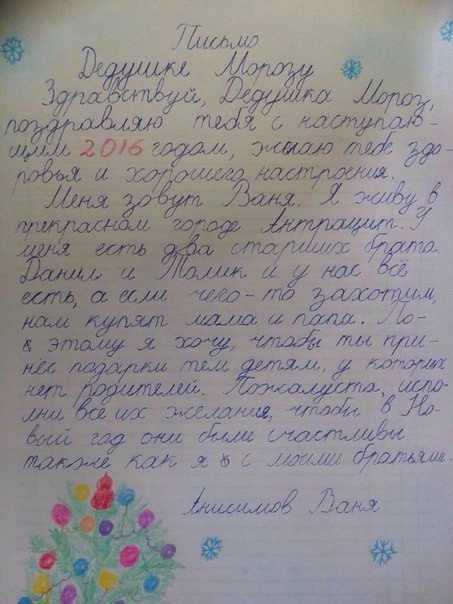 Письмо
Дедушке Морозу
Здравствуй, Дедушка Мороз,
поздравляю тебя с наступаю-
щим 2016 годом, желаю тебе здо-
ровья и хорошего настроения.
Меня зовут Ваня. Я живу в
прекрасном городе Антрацит. У
меня есть два старших брата.
Данил и Толик и у нас всё
есть, а если чего-то захотим,
нам купят мама и папа. По-
этому я хочу, чтобы ты при-
нёс подарки тем детям, у которых
нет родителей. Пожалуста, испол-
ни все их желание, чтобы в Но-
вый год они были счастливы
также как я с моими братьями.
Анисимов Ваня